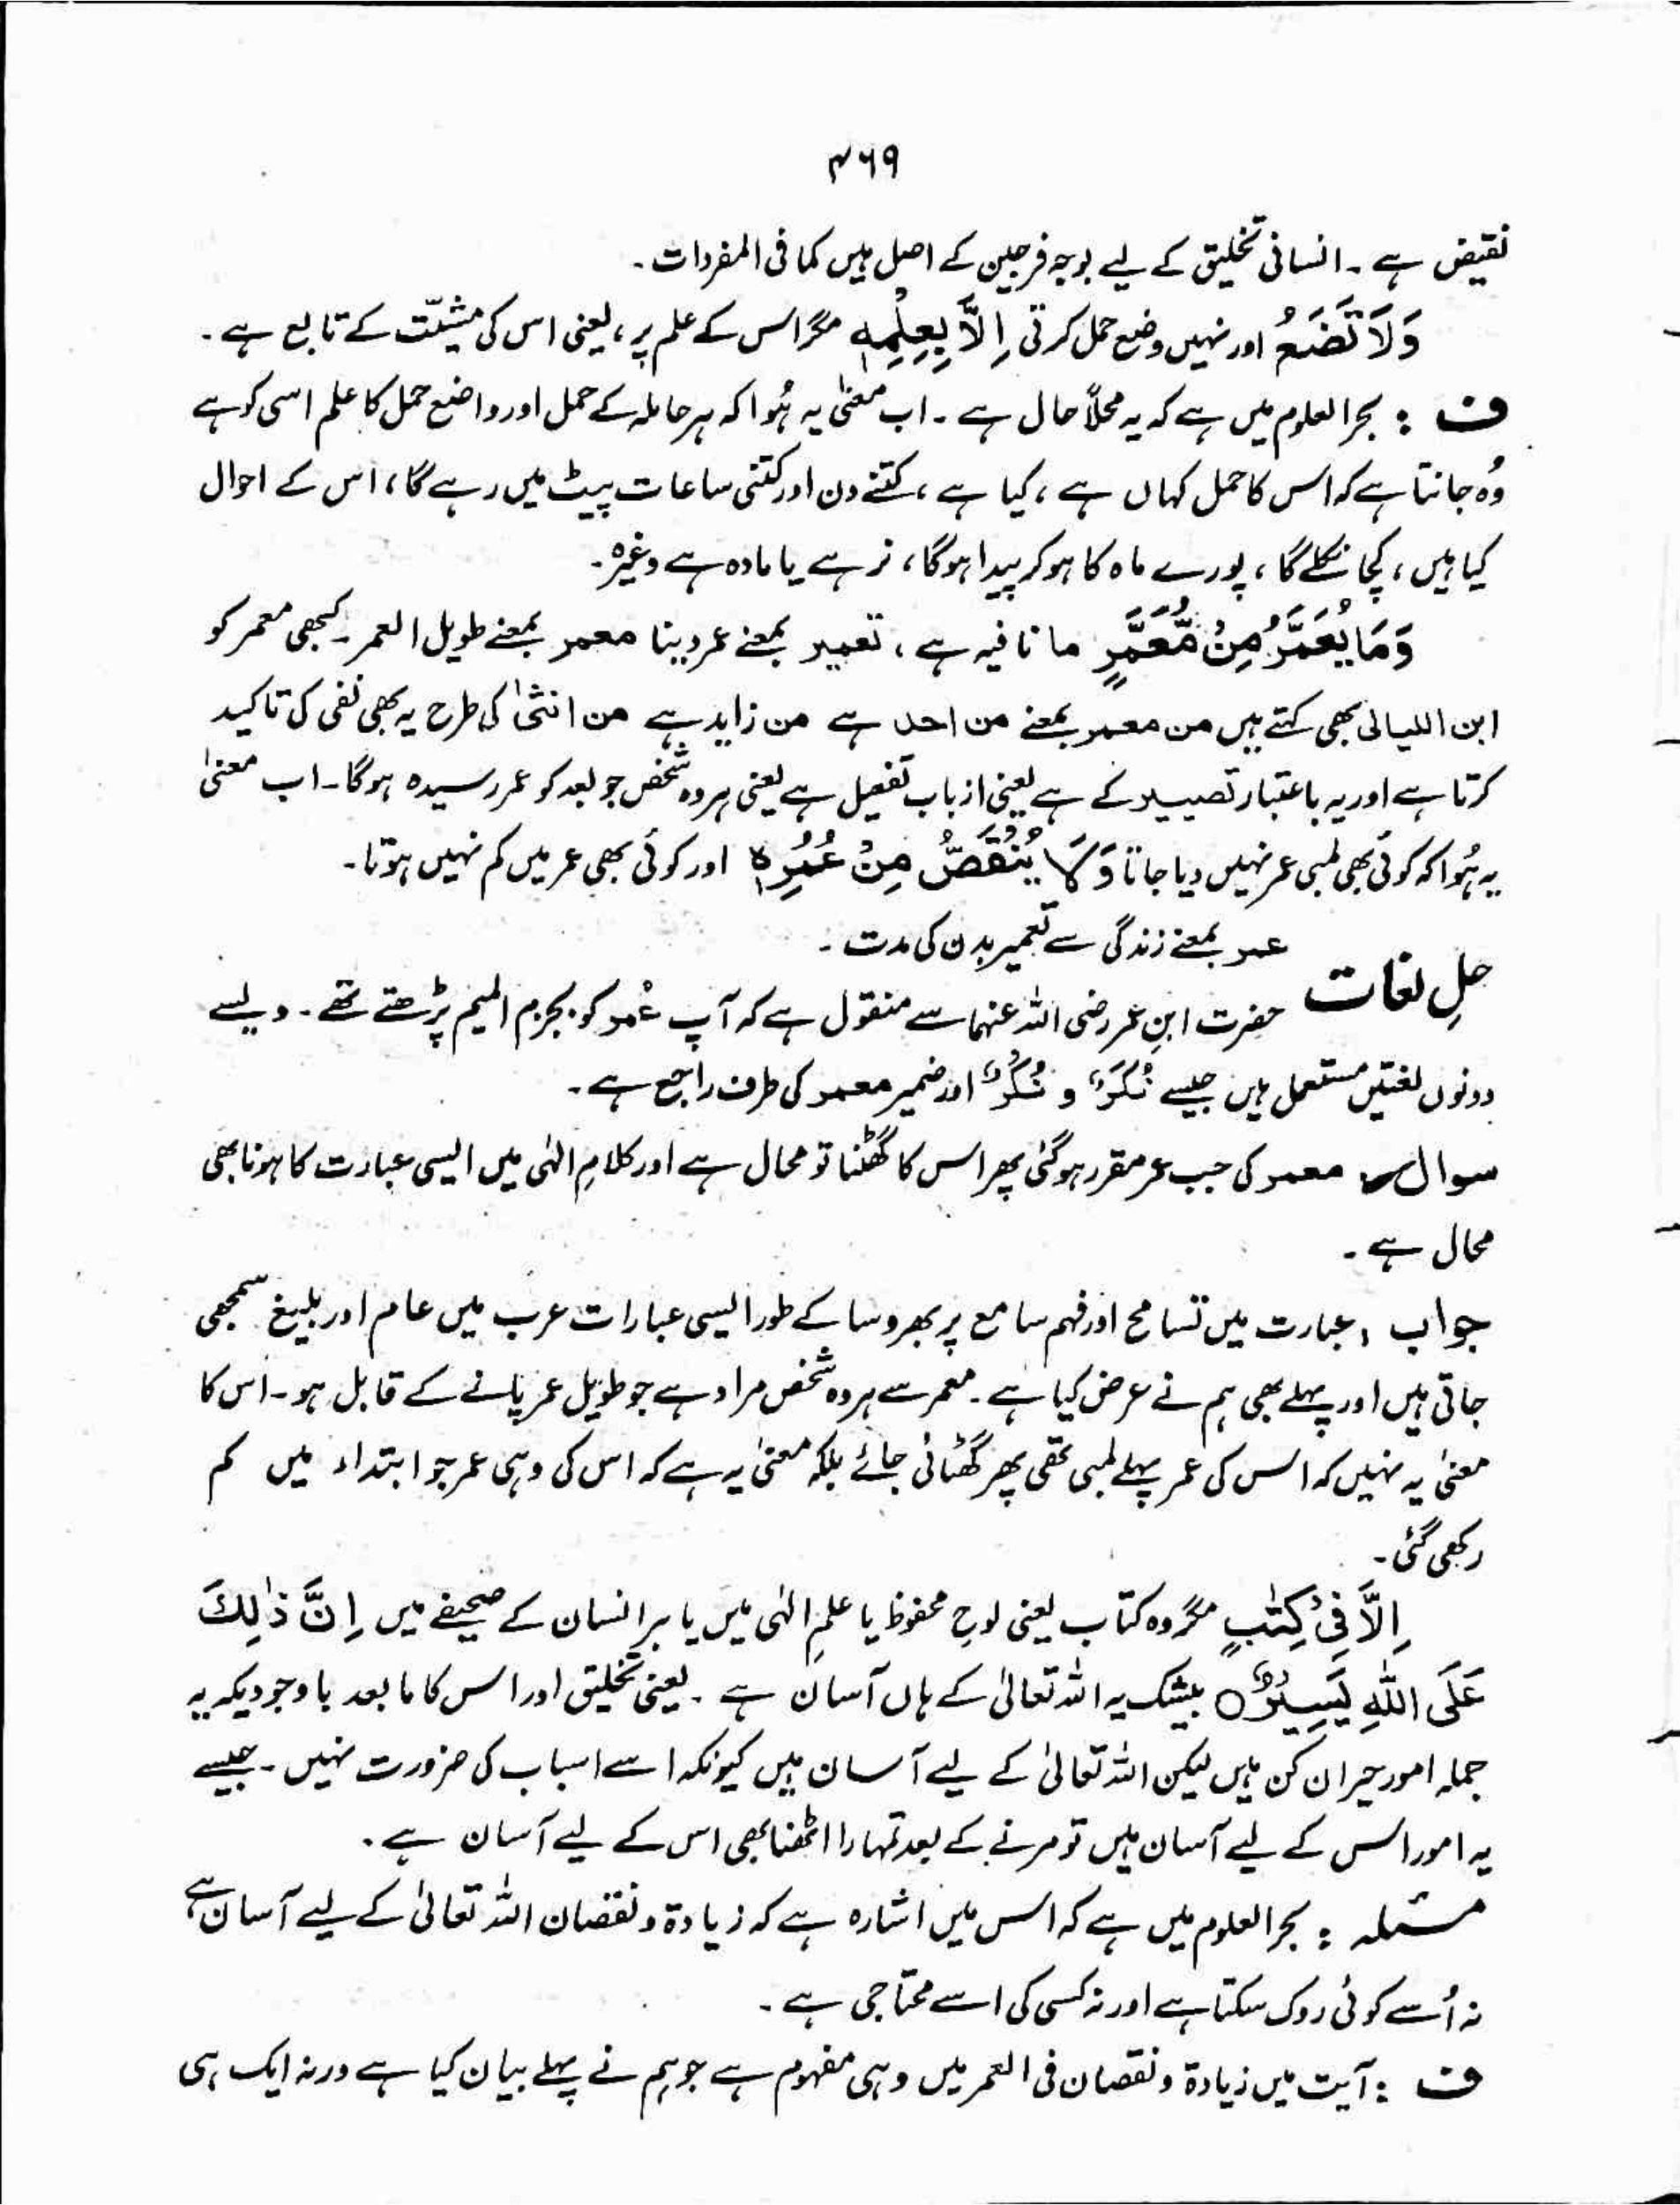 ۴۶۹
نقیض ہے ۔ انسانی تخلیق کے لیے بوجہ فرجین کے اصل ہیں کما فی المفردات ۔
وَلَا تَضَعُ اور نہیں وضع حمل کرتی اِلَّا بِعِلْمِهٖ مگر اس کے علم پر ، یعنی اس کی مشیّت کے تابع ہے ۔
ف : بحر العلوم میں ہے کہ یہ محلاً حال ہے ۔ اب معنیٰ یہ ہُوا کہ ہر حاملہ کے حمل اور واضع حمل کا علم اسی کو ہے
وُہ جانتا ہے کہ اس کا حمل کہاں ہے ، کیا ہے ، کتنے دن اور کتنی ساعات پیٹ میں رہے گا ، اس کے احوال
کیا ہیں ، کچا نکلے گا ، پورے ماہ کا ہو کر پیدا ہو گا ، نر ہے یا مادہ ہے وغیرہ ۔
وَمَا يُعَمَّرُ مِنْ مُّعَمَّرٍ ما نافیہ ہے ، تعمیر بمعنے عمر دینا معمر بمعنے طویل العمر ۔ کبھی معمر کو
ابن اللیالی بھی کہتے ہیں من معمر بمعنے من احد ہے من زاید ہے من انثیٰ کی طرح یہ بھی نفی کی تاکید
کرتا ہے اور یہ باعتبار تصییر کے ہے یعنی از باب تفعیل ہے یعنی ہر وہ شخص جو بعد کو عمر رسیدہ ہو گا ۔ اب معنیٰ
یہ ہُوا کہ کوئی بھی لمبی عمر نہیں دیا جاتا وَلَا يُنْقَصُ مِنْ عُمُرِهٖ اور کوئی بھی عمر میں کم نہیں ہوتا ۔
حلِ لغات عمر بمعنے زندگی سے تعمیر بدن کی مدت ۔
حضرت ابنِ عمر رضی اللہ عنہما سے منقول ہے کہ آپ عُمْر کو بجزم المیم پڑھتے تھے ۔ ویسے
دونوں لغتیں مستعمل ہیں جیسے نُكْرٌ و نُكُرٌ اور ضمیر معمر کی طرف راجع ہے ۔
سوال : معمر کی جب عمر مقرر ہو گئی پھر اس کا گھٹنا تو محال ہے اور کلامِ الٰہی میں ایسی عبارت کا ہونا بھی
محال ہے ۔
جواب : عبارت میں تسامح اور فہم سامع پر بھروسا کے طور ایسی عبارات عرب میں عام اور بلیغ سمجھی
جاتی ہیں اور پہلے بھی ہم نے عرض کیا ہے ۔ معمر سے ہر وہ شخص مراد ہے جو طویل عمر پانے کے قابل ہو ۔ اس کا
معنیٰ یہ نہیں کہ اس کی عمر پہلے لمبی تھی پھر گھٹائی جائے بلکہ معنیٰ یہ ہے کہ اس کی وہی عمر جو ابتداء میں کم
رکھی گئی ۔
اِلَّا فِيْ كِتٰبٍ مگر وہ کتاب یعنی لوحِ محفوظ یا علمِ الٰہی میں یا ہر انسان کے صحیفے میں اِنَّ ذٰلِكَ
عَلَى اللّٰهِ يَسِيْرٌ ○ بیشک یہ اللہ تعالیٰ کے ہاں آسان ہے ۔ یعنی تخلیق اور اس کا ما بعد باوجودیکہ یہ
جملہ امور حیران کن ہیں لیکن اللہ تعالیٰ کے لیے آسان ہیں کیونکہ اسے اسباب کی ضرورت نہیں ۔ جیسے
یہ امور اس کے لیے آسان ہیں تو مرنے کے بعد تمہارا اٹھنا بھی اس کے لیے آسان ہے ۔
مسئلہ : بحر العلوم میں ہے کہ اس میں اشارہ ہے کہ زیادة و نقصان اللہ تعالیٰ کے لیے آسان ہے
نہ اُسے کوئی روک سکتا ہے اور نہ کسی کی اسے محتاجی ہے ۔
ف : آیت میں زیادة و نقصان فی العمر میں وہی مفہوم ہے جو ہم نے پہلے بیان کیا ہے ورنہ ایک ہی